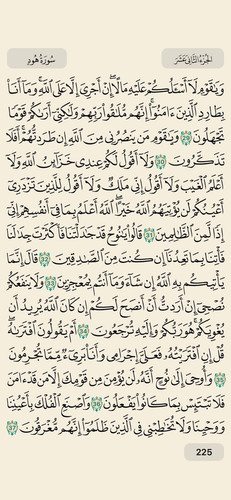 الجزء الثاني عشر
سورة هود
وَيَٰقَوْمِ لَآ أَسْـَٔلُكُمْ عَلَيْهِ مَالًا ۖ إِنْ أَجْرِىَ إِلَّا عَلَى ٱللَّهِ ۚ وَمَآ أَنَا۠
بِطَارِدِ ٱلَّذِينَ ءَامَنُوٓا۟ ۚ إِنَّهُم مُّلَٰقُوا۟ رَبِّهِمْ وَلَٰكِنِّىٓ أَرَىٰكُمْ قَوْمًا
تَجْهَلُونَ 29 وَيَٰقَوْمِ مَن يَنصُرُنِى مِنَ ٱللَّهِ إِن طَرَدتُّهُمْ ۚ أَفَلَا
تَذَكَّرُونَ 30 وَلَآ أَقُولُ لَكُمْ عِندِى خَزَآئِنُ ٱللَّهِ وَلَآ
أَعْلَمُ ٱلْغَيْبَ وَلَآ أَقُولُ إِنِّى مَلَكٌ وَلَآ أَقُولُ لِلَّذِينَ تَزْدَرِىٓ
أَعْيُنُكُمْ لَن يُؤْتِيَهُمُ ٱللَّهُ خَيْرًا ۖ ٱللَّهُ أَعْلَمُ بِمَا فِىٓ أَنفُسِهِمْ ۖ إِنِّىٓ
إِذًا لَّمِنَ ٱلظَّٰلِمِينَ 31 قَالُوا۟ يَٰنُوحُ قَدْ جَٰدَلْتَنَا فَأَكْثَرْتَ جِدَٰلَنَا
فَأْتِنَا بِمَا تَعِدُنَآ إِن كُنتَ مِنَ ٱلصَّٰدِقِينَ 32 قَالَ إِنَّمَا
يَأْتِيكُم بِهِ ٱللَّهُ إِن شَآءَ وَمَآ أَنتُم بِمُعْجِزِينَ 33 وَلَا يَنفَعُكُمْ
نُصْحِىٓ إِنْ أَرَدتُّ أَنْ أَنصَحَ لَكُمْ إِن كَانَ ٱللَّهُ يُرِيدُ أَن
يُغْوِيَكُمْ ۚ هُوَ رَبُّكُمْ وَإِلَيْهِ تُرْجَعُونَ 34 أَمْ يَقُولُونَ ٱفْتَرَىٰهُ ۖ
قُلْ إِنِ ٱفْتَرَيْتُهُۥ فَعَلَىَّ إِجْرَامِى وَأَنَا۠ بَرِىٓءٌ مِّمَّا تُجْرِمُونَ
35 وَأُوحِىَ إِلَىٰ نُوحٍ أَنَّهُۥ لَن يُؤْمِنَ مِن قَوْمِكَ إِلَّا مَن قَدْ ءَامَنَ
فَلَا تَبْتَئِسْ بِمَا كَانُوا۟ يَفْعَلُونَ 36 وَٱصْنَعِ ٱلْفُلْكَ بِأَعْيُنِنَا
وَوَحْيِنَا وَلَا تُخَٰطِبْنِى فِى ٱلَّذِينَ ظَلَمُوٓا۟ ۚ إِنَّهُم مُّغْرَقُونَ 37
225